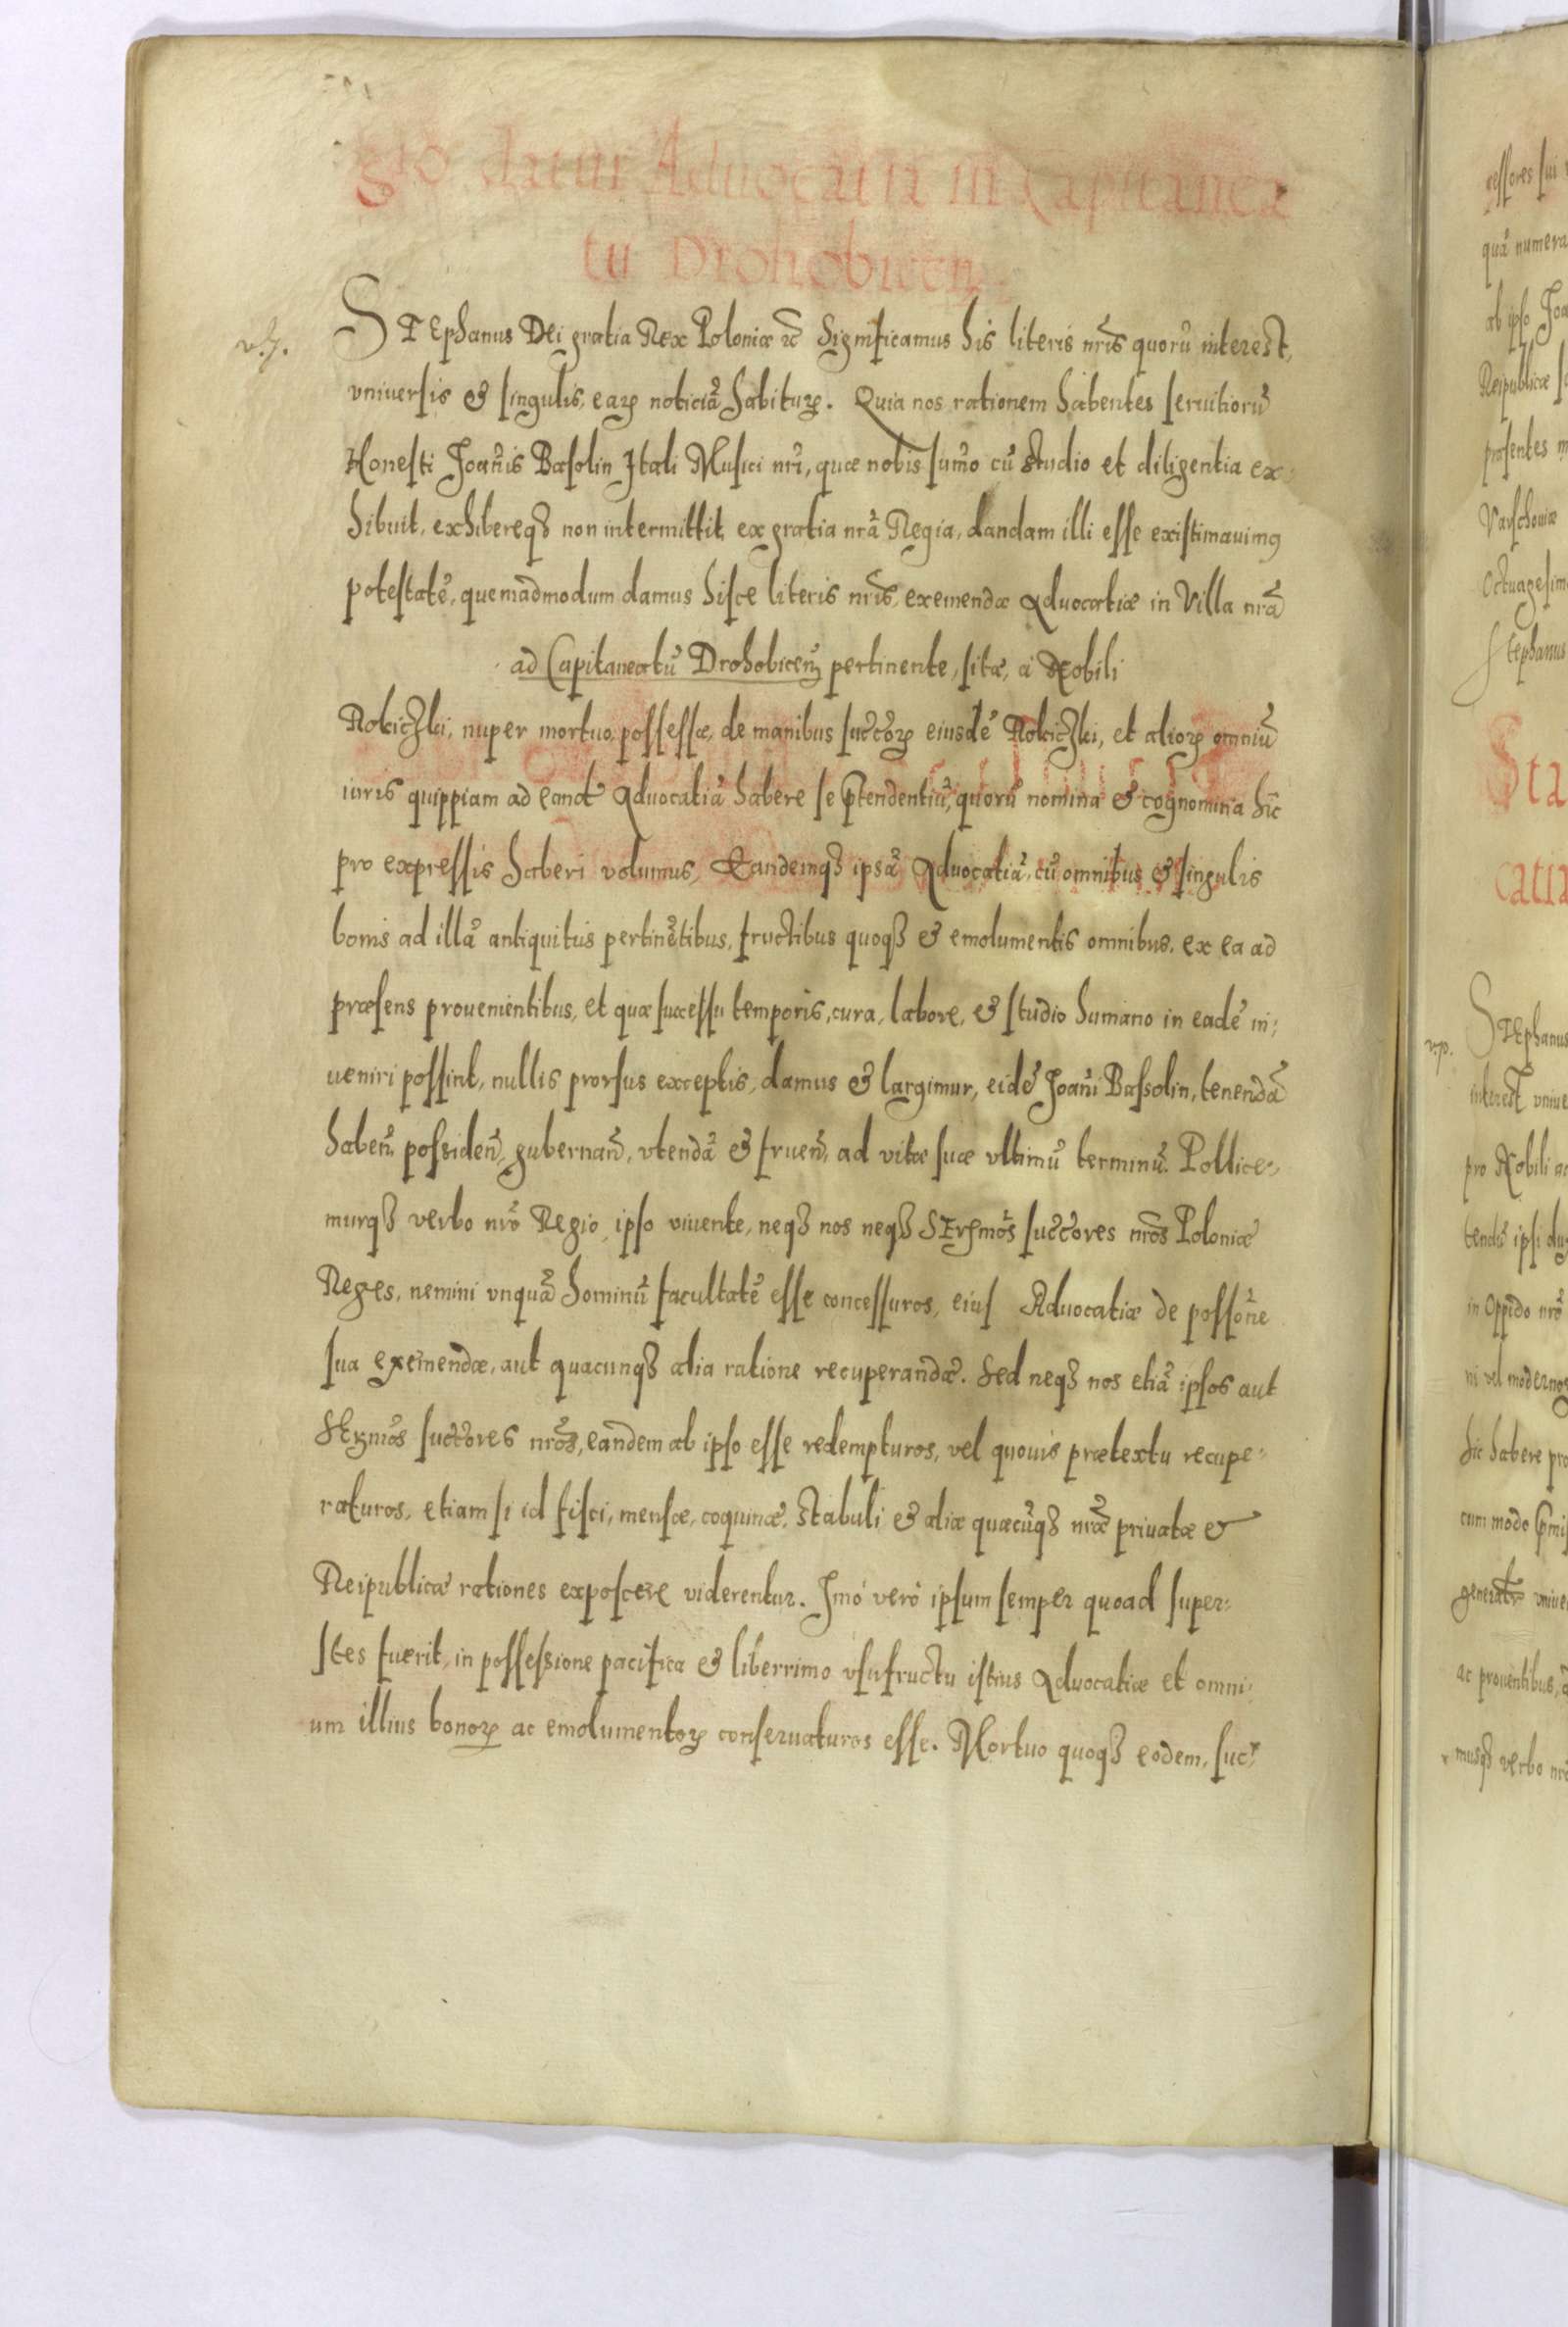 gio datur Advocatia in Capitanea
tu Drohobicen̄
STEphanus Dei gratia Rex Poloniæ &c̄ Significamus his literis nr̃is quorũ interest,
vniuersis & singulis, earꝝ noticiã habiturꝝ. Quia nos rationem habentes seruitiorũ
Honesti Joañis Basolin Itali Musici nr̃i, quæ nobis sum̃o cũ studio et diligentia ex:
hibuit, exhibereqꝫ non intermittit, ex gratia nr̃a Regia, dandam illi esse existimauimꝰ
potestatẽ, quemadmodum damus hisce literis nr̃is, exemendæ Aduocatiæ in Villa nr̃a
ad Capitaneatũ Drohobicen̄ pertinente, sitæ, à Nobili
Rokiczki, nuper mortuo, possessæ, de manibus succ̃orꝝ eiusdẽ Rokiczki, et aliorꝝ omniũ
iuris quippiam ad eand̃ Aduocatiã habere se p̃tendentiũ, quorũ nomina & cognomina hic̃
pro expressis haberi volumus, Eandemqꝫ ipsã Aduocatiã, cũ omnibus & singulis
bonis ad illã antiquitus pertinẽtibus, fructibus quoqꝫ & emolumentis omnibus, ex ea ad
præsens prouenientibus, et quæ successu temporis, cura, labore, & studio humano in eadẽ in:
ueniri possint, nullis prorsus exceptis, damus & largimur, eidẽ Joañi Bassolin, tenendã
haben̄, possiden̄, gubernan̄, vtendã & fruen̄, ad vitæ suæ vltimũ terminũ. Pollice:
murqꝫ verbo nr̃o Regio, ipso viuente, neqꝫ nos neqꝫ SErꝫmõs succ̃ores nr̃os Poloniæ
Reges, nemini vnquã hominũ facultatẽ esse concessuros, eius Aduocatiæ de possõne
sua exemendæ, aut quacunqꝫ alia ratione recuperandæ. Sed neqꝫ nos etiã ipsos aut
SErꝫmõs succ̃ores nr̃os, eandem ab ipso esse redempturos, vel quouis prætextu recupe:
raturos, etiam si id fisci, mensæ, coquinæ, stabuli & aliæ quæcũqꝫ nr̃æ priuatæ &
Reipublicæ rationes exposcere viderentur. Imò verò ipsum semper quoad super:
stes fuerit, in possessione pacifica & liberrimo vsufructu istius Aduocatiæ et omni:
um illius bonorꝝ ac emolumentorꝝ conseruaturos esse. Mortuo quoqꝫ eodem, suc: